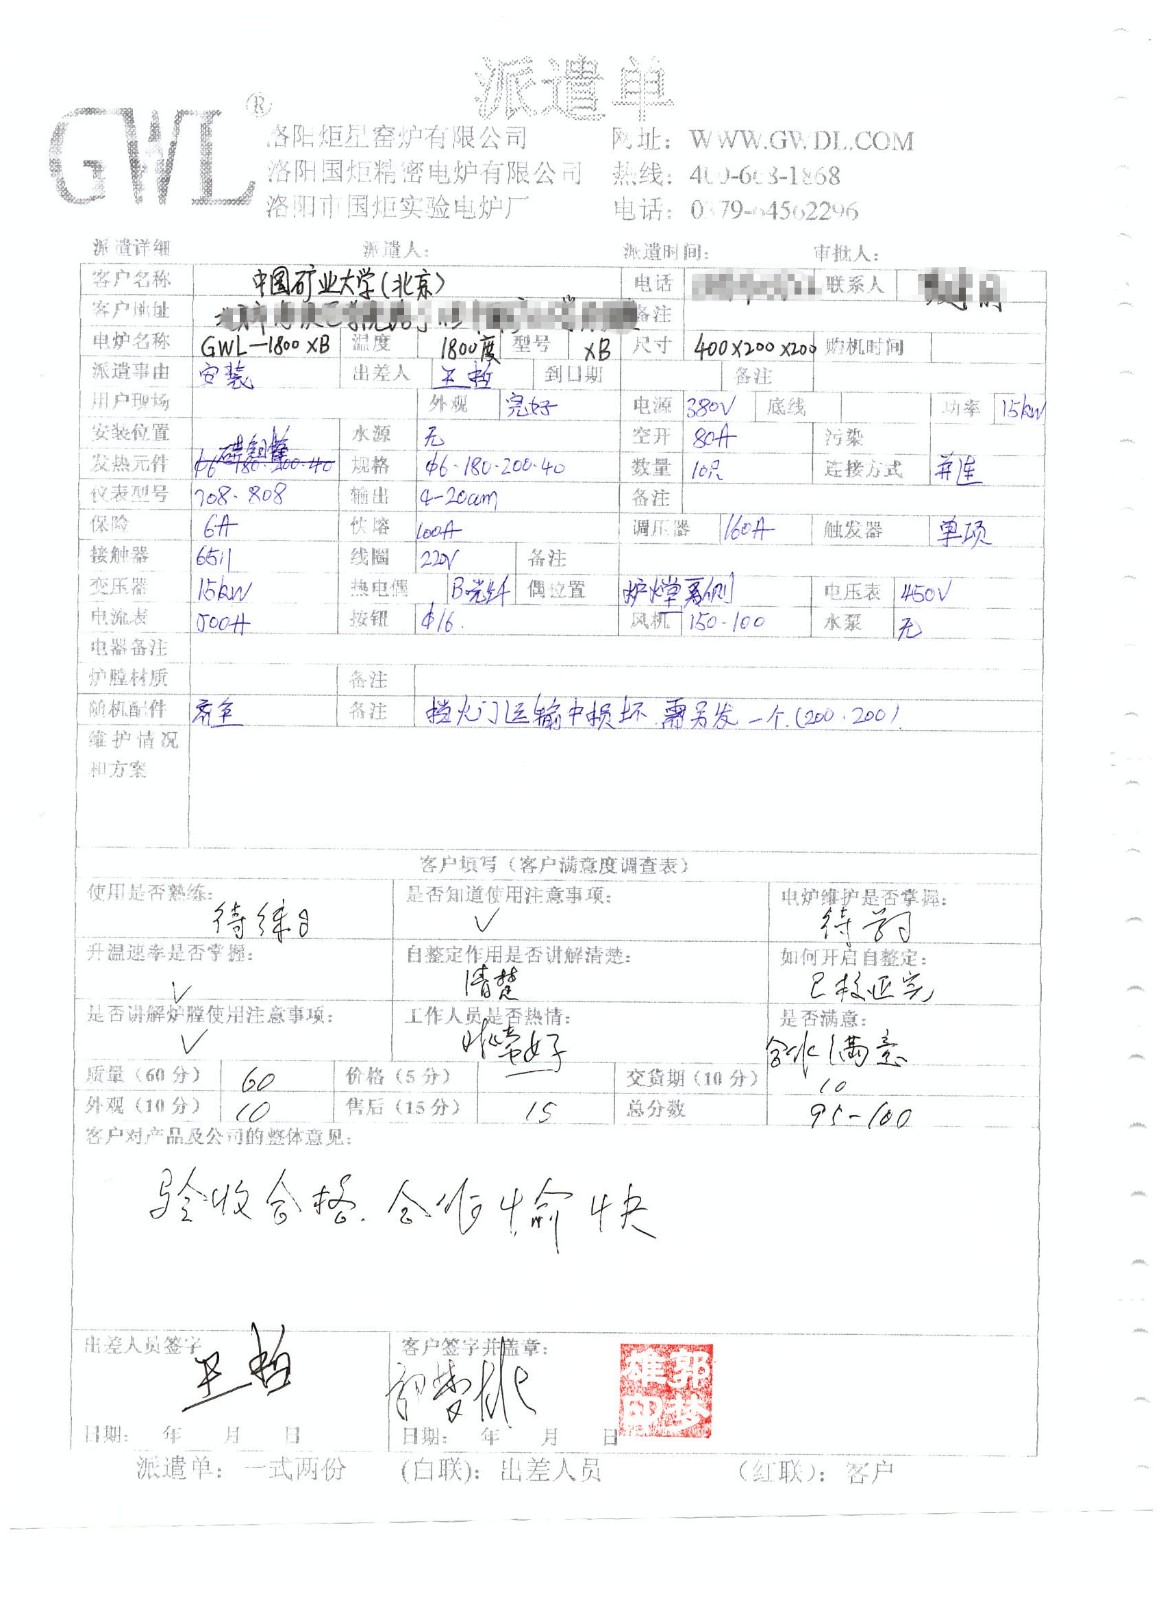 派遣单
GWL®
洛阳炬星窑炉有限公司 网址: WWW.GWDL.COM
洛阳国炬精密电炉有限公司 热线: 400-663-1868
洛阳市国炬实验电炉厂 电话: 0379-64562296
派遣详细 派遣人: 派遣时间: 审批人:
客户名称 中国矿业大学(北京) 电话 联系人
客户地址 备注
电炉名称 GWL-1800XB 温度 1800度 型号 XB 尺寸 400X200X200 购机时间
派遣事由 安装 出差人 王哲 到口期 备注
用户现场 外观 完好 电源 380V 底线 功率 15kw
安装位置 水源 无 空开 80A 污染
发热元件 规格 φ6·180·200·40 数量 10只 连接方式 并连
仪表型号 708·808 输出 4-20am 备注
保险 6A 快熔 100A 调压器 160A 触发器 单项
接触器 6511 线圈 220V 备注
变压器 15kw 热电偶 B 偶位置 炉膛 侧 电压表 450V
电流表 500A 按钮 φ16. 风机 150-100 水泵 无
电器备注
炉膛材质 备注
随机配件 齐全 备注 挡火门运输中损坏.需另发一个.(200.200)
维护情况
和方案
客户填写(客户满意度调查表)
使用是否熟练: 是否知道使用注意事项: 电炉维护是否掌握:
待练习 ✓ 待学习
升温速率是否掌握: 自整定作用是否讲解清楚: 如何开启自整定:
✓ 清楚 已校正完
是否讲解炉膛使用注意事项: 工作人员是否热情: 是否满意:
✓ 非常好 满意
质量(60分) 60 价格(5分) 交货期(10分) 10
外观(10分) 10 售后(15分) 15 总分数 95-100
客户对产品及公司的整体意见:
验收合格.合作愉快
出差人员签字 王哲 客户签字并盖章: 郭梦雄
雄郭
印梦
日期: 年 月 日 日期: 年 月 日
派遣单: 一式两份 (白联): 出差人员 (红联): 客户